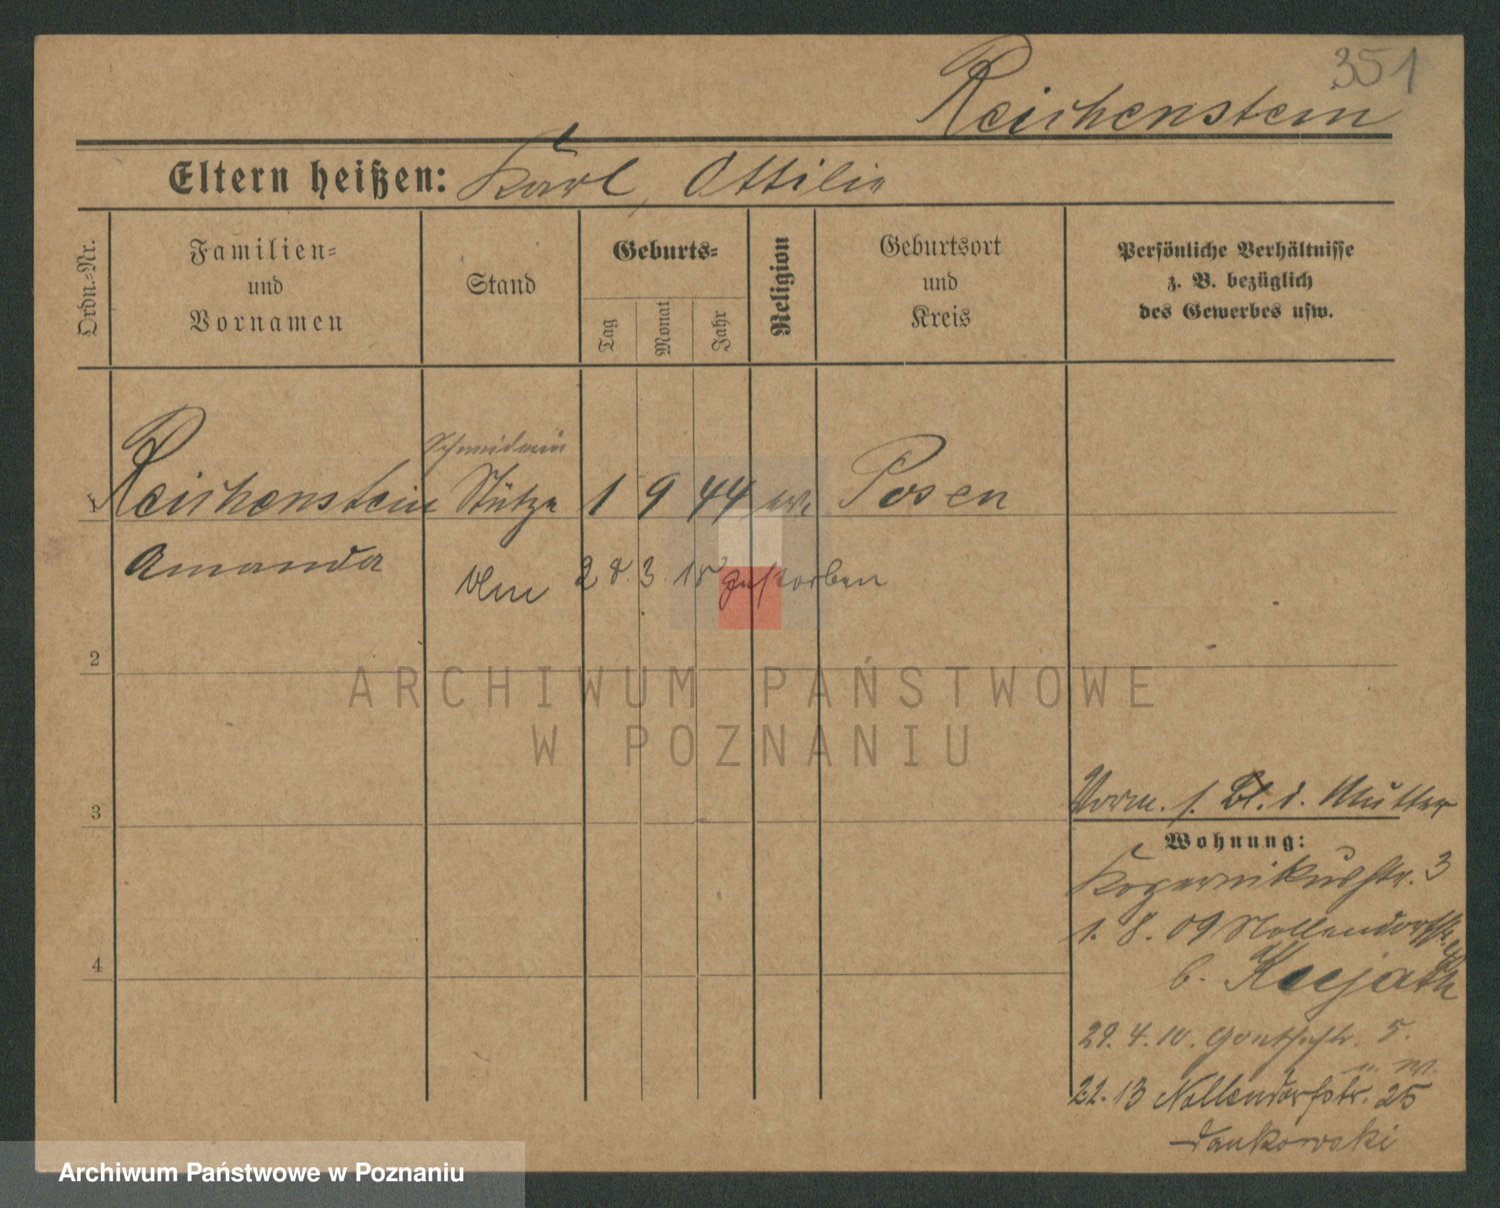 351
Reichenstein
Eltern heißen: Karl, Ottilie
Ordn.-Nr.
Familien-
und
Vornamen
Stand
Geburts-
Tag
Monat
Jahr
Religion
Geburtsort
und
Kreis
Persönliche Verhältnisse
z. B. bezüglich
des Gewerbes usw.
Schneiderin
Reichenstein Stütze 1 9 44 ev. Posen
Amanda
28. 3. 18 gestorben
2
ARCHIWUM PAŃSTWOWE
W POZNANIU
3
Vorm. s. Bl. d. Mutter
Wohnung:
Kopernikusstr. 3
1. 8. 09 Nollendorfstr.
b.
4
29. 4. 10. 5.
22. 13 Nollendorfstr. 25
Dankowski
Archiwum Państwowe w Poznaniu